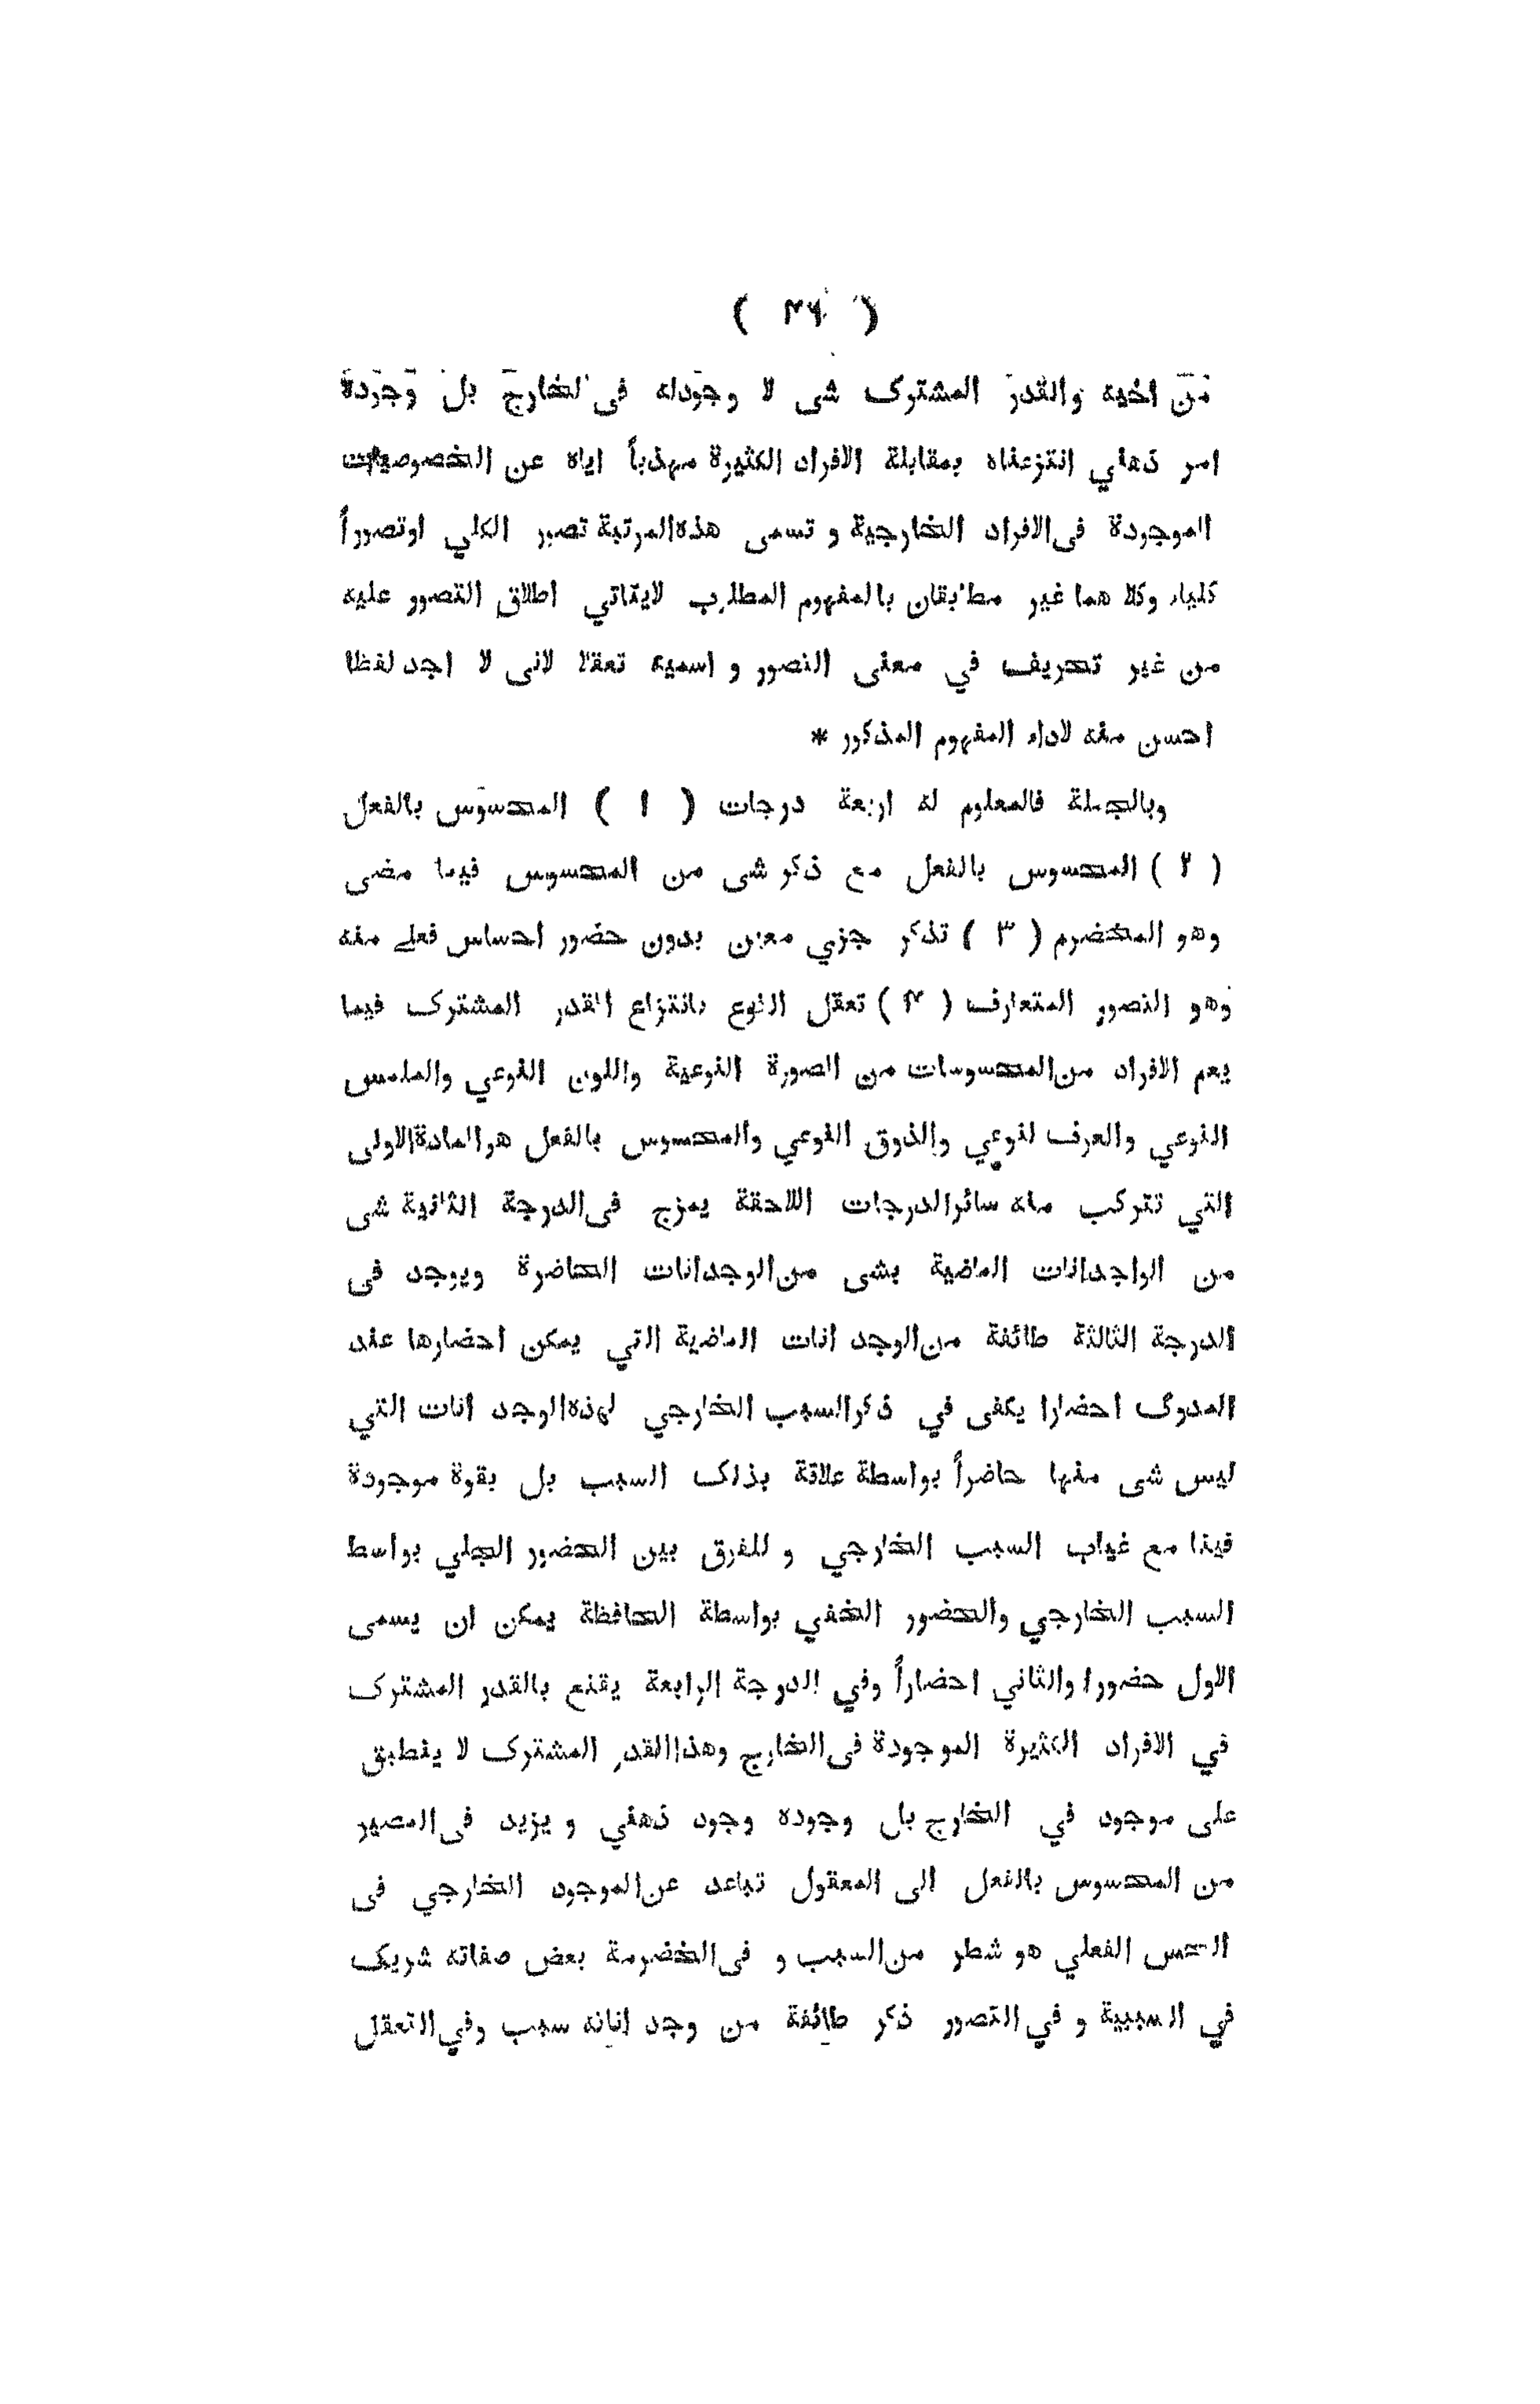 ( ٤٦ )
من اخيه والقدر المشترك شى لا وجودله فى الخارج بل وجوده
امر ذهني انتزعناه بمقابلة الافراد الكثيرة مهذباً اياه عن الخصوصيات
الموجودة فى الافراد الخارجية و تسمى هذه المرتبة تصور الكلي اوتصوراً
كليا، وكلا هما غير مطابقان بالمفهوم المطلوب لايتاتي اطلاق التصور عليه
من غير تحريف في معنى التصور و اسميه تعقلا لانى لا اجد لفظا
احسن منه لاداء المفهوم المذكور *
وبالجملة فالمعلوم له اربعة درجات ( ١ ) المحسوس بالفعل
( ٢ ) المحسوس بالفعل مع ذكر شى من المحسوس فيما مضى
وهو المخضرم ( ٣ ) تذكر جزي معين بدون حضور احساس فعلے منه
وهو التصور المتعارف ( ٤ ) تعقل النوع بانتزاع القدر المشترك فيما
يعم الافراد من المحسوسات من الصورة النوعية واللون النوعي والملمس
النوعي والعرف لنوعي والذوق النوعي والمحسوس بالفعل هو المادة الاولى
التي تتركب منه سائر الدرجات اللاحقة يمزج فى الدرجة الثانية شى
من الواجدانات الماضية بشى من الوجدانات الحاضرة ويوجد فى
الدرجة الثالثة طائفة من الوجد انات الماضية التي يمكن احضارها عند
المدرك احضارا يكفى في ذكر السبب الخارجي لهذه الوجد انات التي
ليس شى منها حاضراً بواسطة علاقة بذلك السبب بل بقوة موجودة
فينا مع غياب السبب الخارجي و للفرق بين الحضور الجلي بواسط
السبب الخارجي والحضور الخفي بواسطة الحافظة يمكن ان يسمى
الاول حضورا والثاني احضاراً وفي الدرجة الرابعة يقنع بالقدر المشترك
في الافراد الكثيرة الموجودة فى الخارج وهذا القدر المشترك لا ينطبق
على موجود في الخارج بل وجوده وجود ذهني و يزيد فى المصير
من المحسوس بالفعل الى المعقول تباعد عن الموجود الخارجي فى
الحس الفعلي هو شطر من السبب و فى الخضرمة بعض صفاته شريك
في السببية و في التصور ذكر طائفة من وجد اناته سبب وفي التعقل